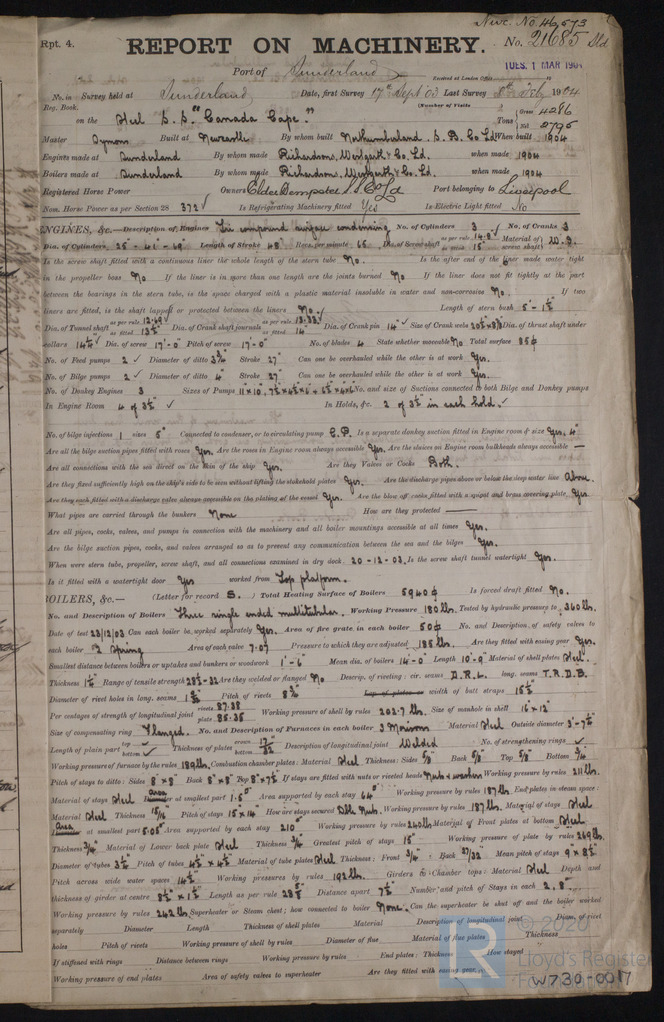 Nwc. No. 46,573
Rpt. 4.
REPORT ON MACHINERY.
No. 21685 Sld
Port of Sunderland
Received at London Office
TUES. 1 MAR 1904
No. in Survey held at Sunderland Date, first Survey 17th Sept 03 Last Survey Feby 1904
Reg. Book. (Number of Visits
on the Steel S.S. "Canada Cape." Tons Gross 4286 Net 2795
Master Symons Built at Newcastle By whom built Northumberland S. B. Co Ld When built 1904
Engines made at Sunderland By whom made Richardsons, Westgarth & Co. Ld. when made 1904
Boilers made at Sunderland By whom made Richardsons, Westgarth & Co. Ld. when made 1904
Registered Horse Power Owners Elder Dempster & Co Ld Port belonging to Liverpool
Nom. Horse Power as per Section 28 372 Is Refrigerating Machinery fitted Yes Is Electric Light fitted No
ENGINES, &c.—Description of Engines Tri compound surface condensing No. of Cylinders 3 No. of Cranks 3
Dia. of Cylinders 25 - 41 - 69 Length of Stroke 48 Revs. per minute 65 Dia. of Screw shaft as per rule 14.0 as fitted 15 Material of screw shaft W. I.
Is the screw shaft fitted with a continuous liner the whole length of the stern tube No. Is the after end of the liner made water tight
in the propeller boss No If the liner is in more than one length are the joints burned No If the liner does not fit tightly at the part
between the bearings in the stern tube, is the space charged with a plastic material insoluble in water and non-corrosive No. If two
liners are fitted, is the shaft lapped or protected between the liners No. Length of stern bush 5'-1½
Dia. of Tunnel shaft as per rule 12.69 as fitted 13½ Dia. of Crank shaft journals as per rule 13.33 as fitted 14 Dia. of Crank pin 14 Size of Crank webs Dia. of thrust shaft under
collars 14½ Dia. of screw 17'-0" Pitch of screw 17'-0" No. of blades 4 State whether moveable No Total surface 85
No. of Feed pumps 2 Diameter of ditto 3¾ Stroke 27" Can one be overhauled while the other is at work Yes.
No. of Bilge pumps 2 Diameter of ditto 4" Stroke 27" Can one be overhauled while the other is at work Yes.
No. of Donkey Engines 3 Sizes of Pumps No. and size of Suctions connected to both Bilge and Donkey pumps
In Engine Room 4 of 3½ In Holds, &c. 2 of 3½ in each hold.
No. of bilge injections 1 sizes 5" Connected to condenser, or to circulating pump C.P. Is a separate donkey suction fitted in Engine room & size Yes, 4"
Are all the bilge suction pipes fitted with roses Yes. Are the roses in Engine room always accessible Yes. Are the sluices on Engine room bulkheads always accessible —
Are all connections with the sea direct on the skin of the ship Yes. Are they Valves or Cocks Both.
Are they fixed sufficiently high on the ship's side to be seen without lifting the stokehold plates Yes. Are the discharge pipes above or below the deep water line Above.
Are they each fitted with a discharge valve always accessible on the plating of the vessel Yes. Are the blow off cocks fitted with a spigot and brass covering plate Yes
What pipes are carried through the bunkers None How are they protected —
Are all pipes, cocks, valves, and pumps in connection with the machinery and all boiler mountings accessible at all times Yes.
Are the bilge suction pipes, cocks, and valves arranged so as to prevent any communication between the sea and the bilges Yes.
When were stern tube, propeller, screw shaft, and all connections examined in dry dock 20-12-03. Is the screw shaft tunnel watertight Yes.
Is it fitted with a watertight door Yes worked from Top platform.
BOILERS, &c.— (Letter for record S. ) Total Heating Surface of Boilers 5940 Is forced draft fitted No.
No. and Description of Boilers Three single ended multitubular. Working Pressure 180 lbs. Tested by hydraulic pressure to 360 lbs.
Date of test 23/12/03 Can each boiler be worked separately Yes. Area of fire grate in each boiler 50 No. and Description of safety valves to
each boiler 2 Spring Area of each valve 7.07 Pressure to which they are adjusted 185 lbs. Are they fitted with easing gear Yes.
Smallest distance between boilers or uptakes and bunkers or woodwork 1'-6" Mean dia. of boilers 14-0" Length 10'-9" Material of shell plates Steel.
Thickness Range of tensile strength 28½-32 Are they welded or flanged No Descrip. of riveting: cir. seams D.R.L. long. seams T.R.D.B.
Diameter of rivet holes in long. seams Pitch of rivets Lap of plates or width of butt straps 18½
Per centages of strength of longitudinal joint rivets 87.38 plate 85.35 Working pressure of shell by rules 202.7 lbs. Size of manhole in shell 16" x 12"
Size of compensating ring Flanged. No. and Description of Furnaces in each boiler 3 Morison Material Steel Outside diameter 3'-7½
Length of plain part top bottom Thickness of plates crown bottom 17/32 Description of longitudinal joint Welded No. of strengthening rings
Working pressure of furnace by the rules 189 lbs. Combustion chamber plates: Material Steel Thickness: Sides 5/8" Back 5/8" Top 5/8" Bottom ¾"
Pitch of stays to ditto: Sides 8" x 8" Back 8" x 8" Top 8" x 7½ If stays are fitted with nuts or riveted heads Nuts & washers Working pressure by rules 211 lbs.
Material of stays Steel Area Diameter at smallest part Area supported by each stay 64 Working pressure by rules 187 lbs. End plates in steam space:
Material Steel Thickness 15/16 Pitch of stays 15 x 14 How are stays secured Dbl Nuts. Working pressure by rules 187 lbs. Material of stays Steel
Area at smallest part 5.05 Area supported by each stay 210 Working pressure by rules 240 lbs Material of Front plates at bottom Steel
Thickness ¾ Material of Lower back plate Steel Thickness ¾ Greatest pitch of stays 15 Working pressure of plate by rules 269 lbs.
Diameter of tubes 3½ Pitch of tubes 4½ x 4½ Material of tube plates Steel Thickness: Front ¾ Back 27/32 Mean pitch of stays 9" x 8½
Pitch across wide water spaces 14½ Working pressures by rules 192 lbs. Girders to Chamber tops: Material Steel Depth and
thickness of girder at centre 8½ x 1½ Length as per rule 28 Distance apart 7½ Number and pitch of Stays in each 2, 8.
Working pressure by rules 242 lbs Superheater or Steam chest; how connected to boiler None Can the superheater be shut off and the boiler worked
separately Diameter Length Thickness of shell plates Material Description of longitudinal joint Diam. of rivet
holes Pitch of rivets Working pressure of shell by rules Diameter of flue Material of flue plates Thickness
If stiffened with rings Distance between rings Working pressure by rules End plates: Thickness How stayed
Working pressure of end plates Area of safety valves to superheater Are they fitted with easing gear
© 2020
LR
Lloyd's Register
Foundation
W730-0017